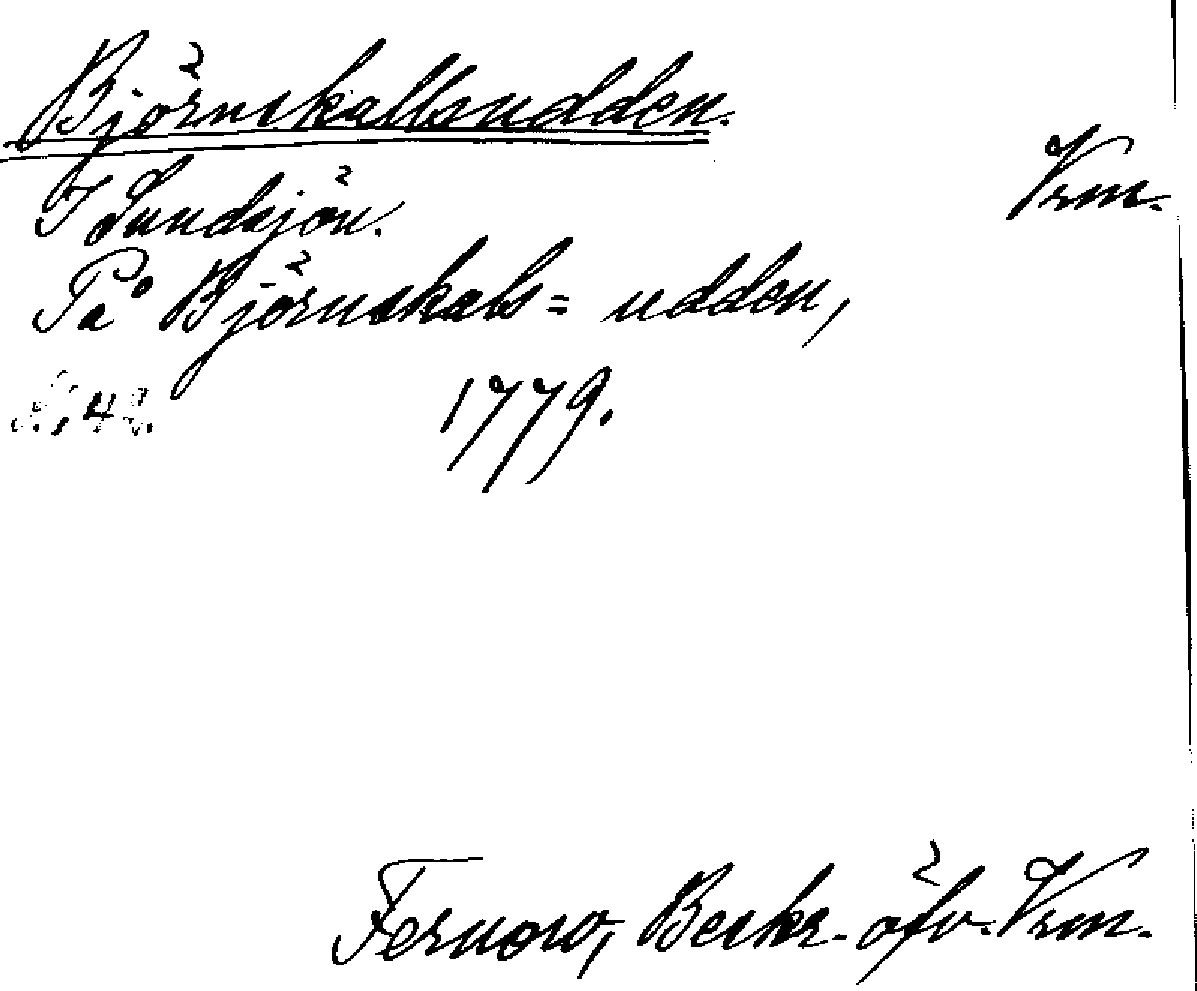 Björnskallsudden.
Vrm.
I Sundsjön.
På Björnskals= udden,
1779.
Fernow, Beskr. öfv. Vrm.